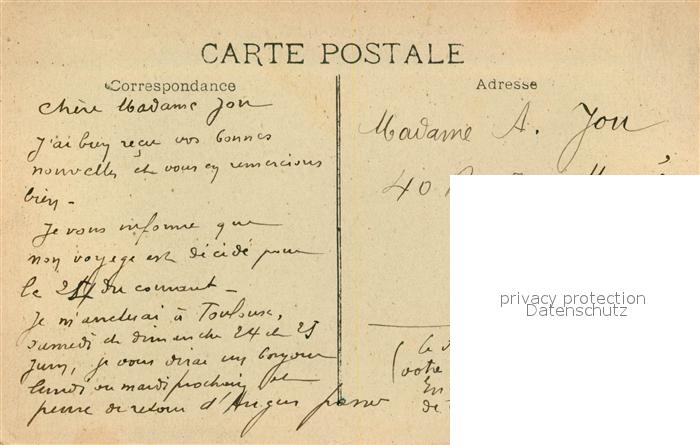 CARTE POSTALE
Correspondance
Adresse
Chère Madame Jou
J'ai bien reçu vos bonnes
nouvelles et vous en remercions
bien -
Je vous informe que
mon voyage est décidé pour
le du courant -
Je m'arrêterai à Toulouse,
samedi et dimanche 24 et 25
Juin, je vous dirai un bonjour
lundi ou mardi prochain et
de retour d'
Madame A. Jou
40
votre
En
de
privacy protection
Datenschutz